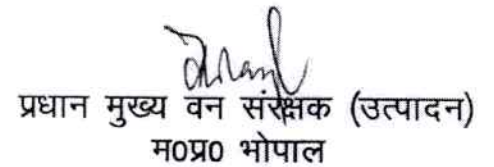 प्रधान मुख्य वन संरक्षक (उत्पादन)
म0प्र0 भोपाल